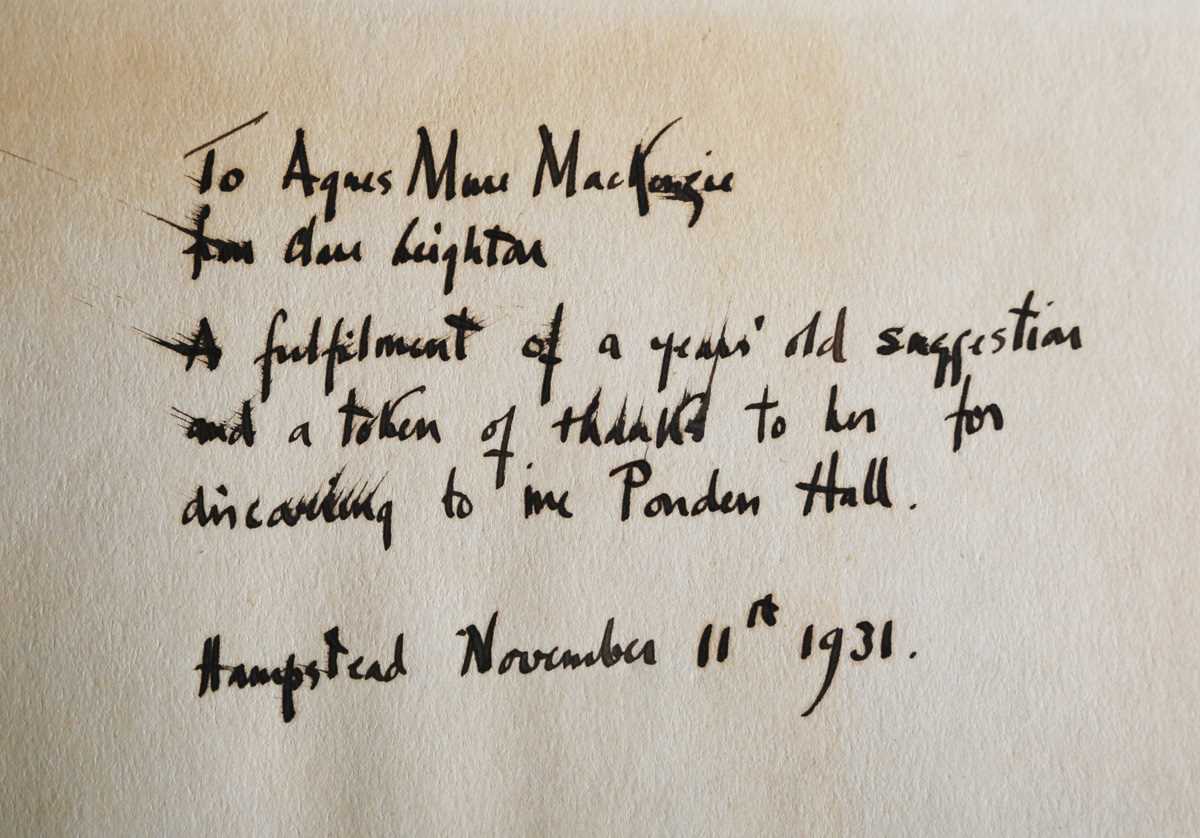 To Agnes Mure MacKenzie
from Clare Leighton
A fulfilment of a years' old suggestion
and a token of thanks to her for
discovering to me Ponden Hall.
Hampstead November 11st 1931.